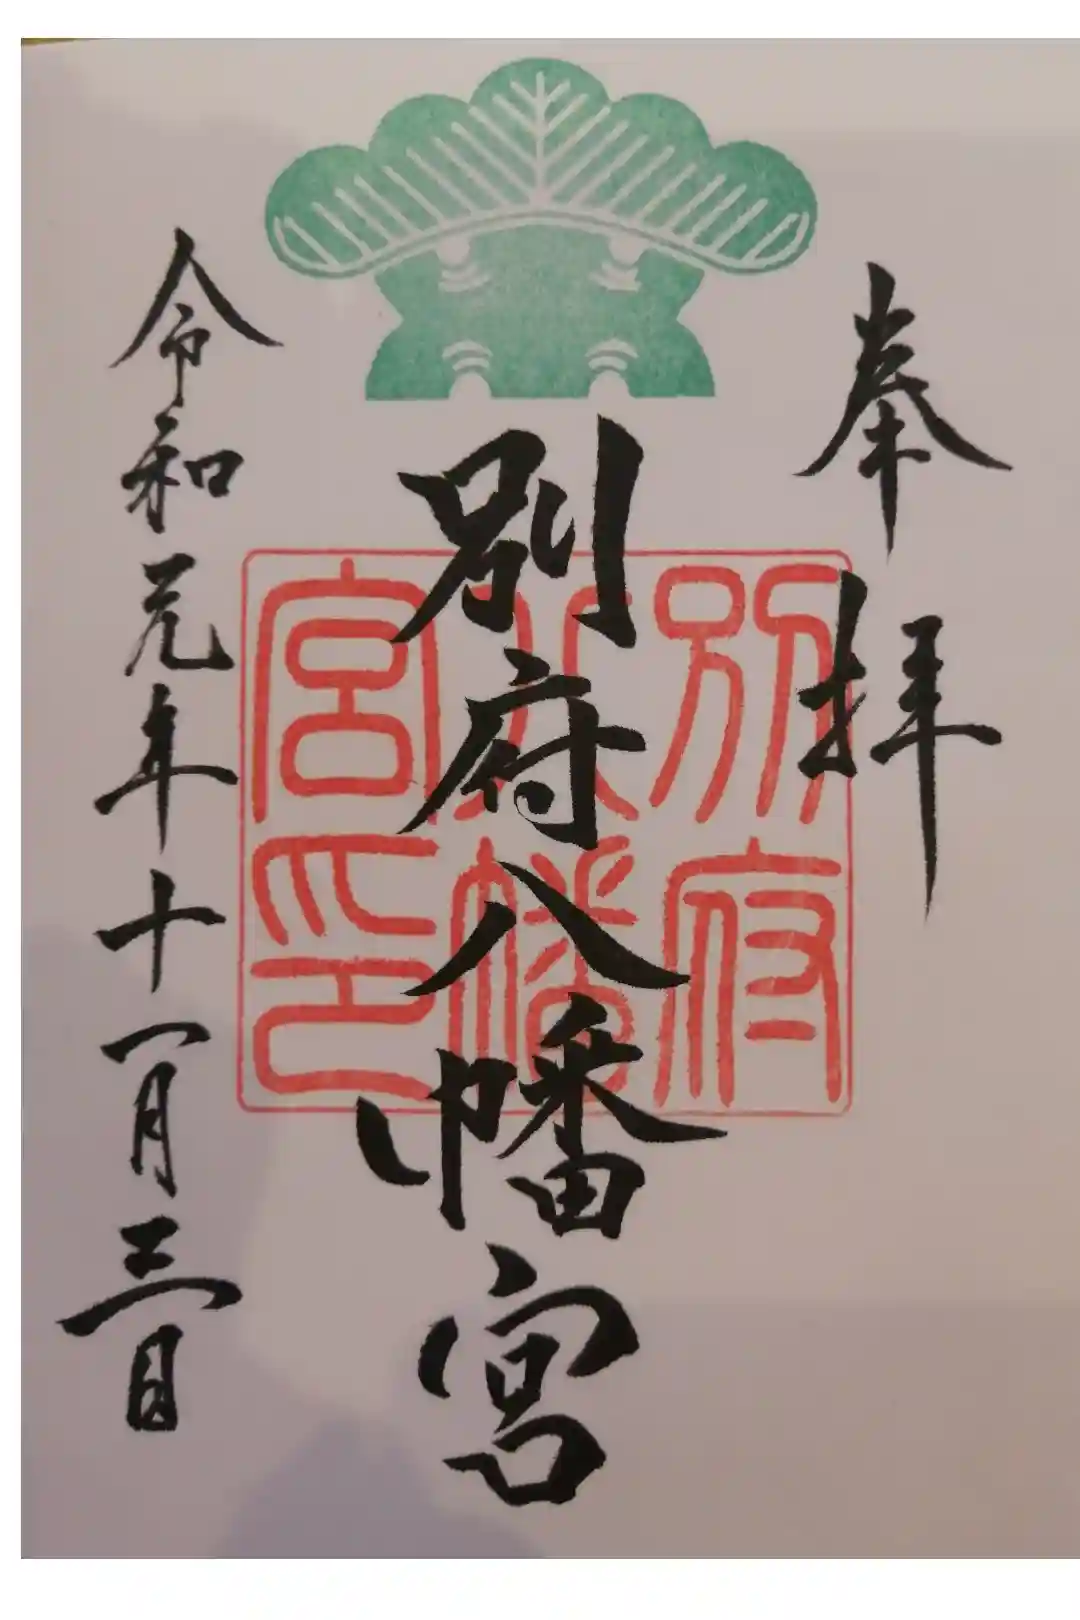 奉拝
別府八幡宮
別府八幡宮印
令和元年十一月三日